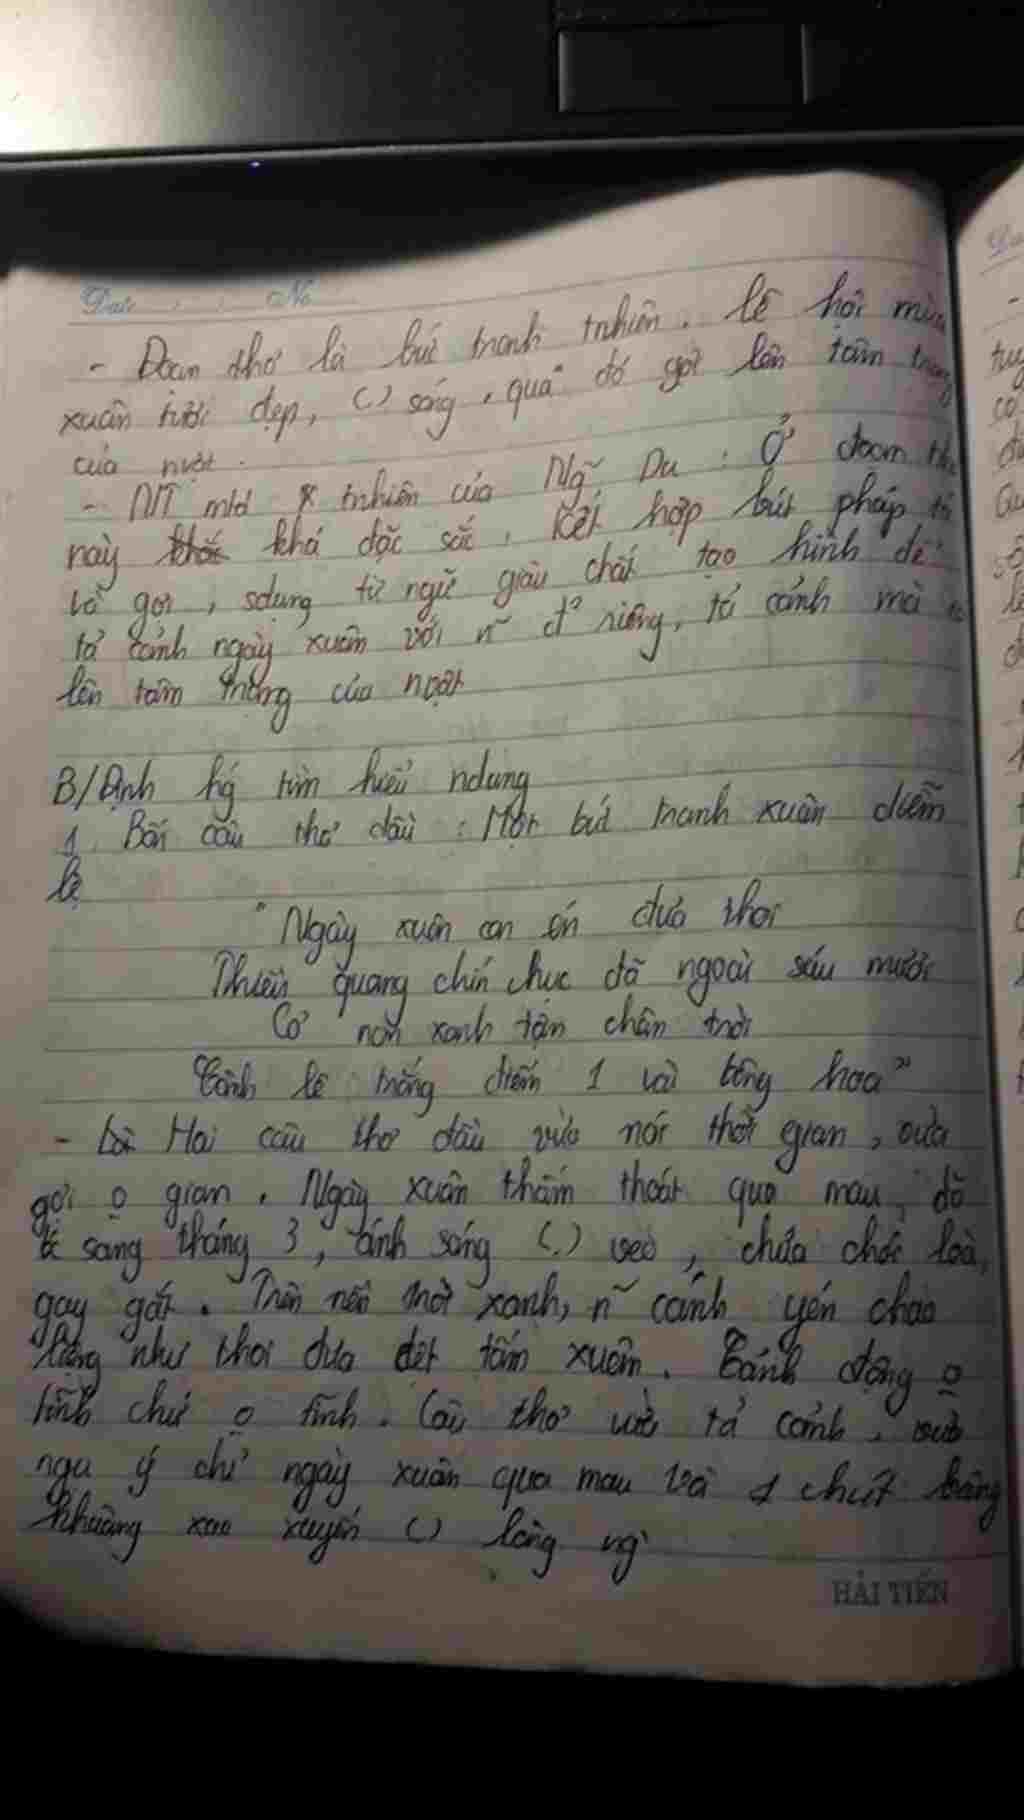 Date No
- Đoạn thơ là bức tranh tnhiên, lễ hội mùa
xuân tươi đẹp, () sáng, qua đó gợi lên tâm trạng
của nvật.
- NT mtả tnhiên của Ng~ Du : Ở đoạn
này khá đặc sắc, kết hợp bút pháp tả
và gợi, sdụng từ ngữ giàu chất tạo hình để
tả cảnh ngày xuân với n~ đ² riêng, tả cảnh mà
lên tâm trạng của nvật
B/ Định hg tìm hiểu ndung
1. Bốn câu thơ đầu : Một bức tranh xuân diễm
lệ
"Ngày xuân con én đưa thoi
Thiều quang chín chục đã ngoài sáu mươi
Cỏ non xanh tận chân trời
Cành lê trắng điểm 1 vài bông hoa"
- Hai câu thơ đầu vừa nói thời gian, vừa
gợi o gian. Ngày xuân thấm thoát qua mau, đã
sang tháng 3, ánh sáng (.) veo, chưa chói loà,
gay gắt. Trên nền trời xanh, n~ cánh yến chao
liệng như thoi đưa dệt tấm xuân. Cánh động o
tĩnh chứ o tĩnh. Câu thơ vừa tả cảnh, vừa
ngụ ý chỉ ngày xuân qua mau và 1 chút bâng
khuâng xao xuyến () lòng ng`
HẢI TIẾN